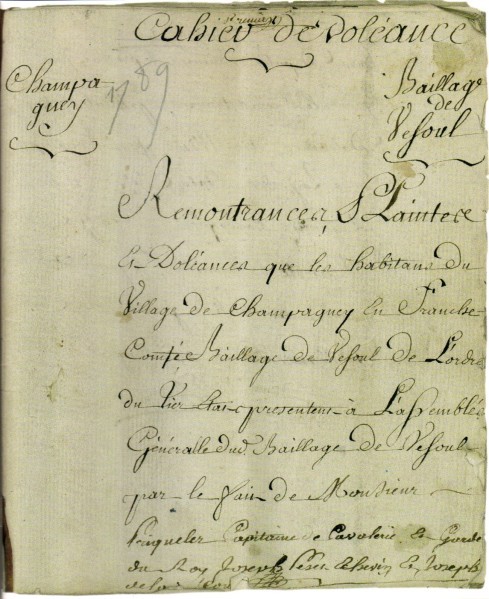 Cahier de doléance
Champa-
gney
1789
Baillage
de
Vesoul
Remontrances, Plaintes
Et Doléances que les habitans du
Village de Champagney En Franche-
Comté Baillage de Vesoul de L'ordre
du Tier Etat présentent à L'assemblée
Généralle dud. Baillage de Vesoul
par le fait de Monsieur
Priqueler Capitaine de Cavalerie Et Garde
du Roy Joseph Et Joseph